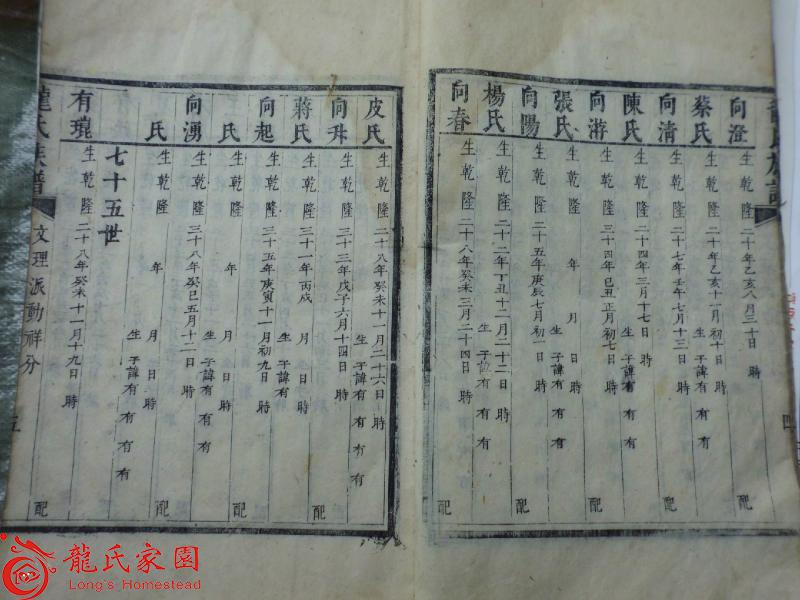 向澄 生乾隆二十年乙亥八月三十日 時 配
蔡氏 生乾隆二十年乙亥十一月初十日 時 生子諱有 有 有
向清 生乾隆二十七年壬午七月十三日 時 配
陳氏 生乾隆二十四年三月十七日 時 生子諱有 有 有
向游 生乾隆三十四年己丑正月初七日 時 配
張氏 生乾隆 年 月 日 時 生子諱有 有 有
向陽 生乾隆二十五年庚辰七月初一日 時 配
楊氏 生乾隆二十二年丁丑十二月二十二日 時 生子諱有 有 有
向春 生乾隆二十八年癸未三月二十四日 時 配
皮氏 生乾隆二十八年癸未十一月二十六日 時 生子諱有 有 有 有
向升 生乾隆三十三年戊子六月十四日 時 配
蔣氏 生乾隆三十一年丙戌 月 日 時 生子諱有
向起 生乾隆三十五年庚寅十一月初九日 時 配
氏 生乾隆 年 月 日 時 生子諱有 有 有
向湧 生乾隆三十八年癸巳五月十二日 時 配
氏 生乾隆 年 月 日 時 生子諱有 有 有 有
七十五世
有琨 生乾隆二十八年癸未十一月十九日 時 配
龍氏族譜 文理派動祥分 五
龍氏家園
Long's Homestead